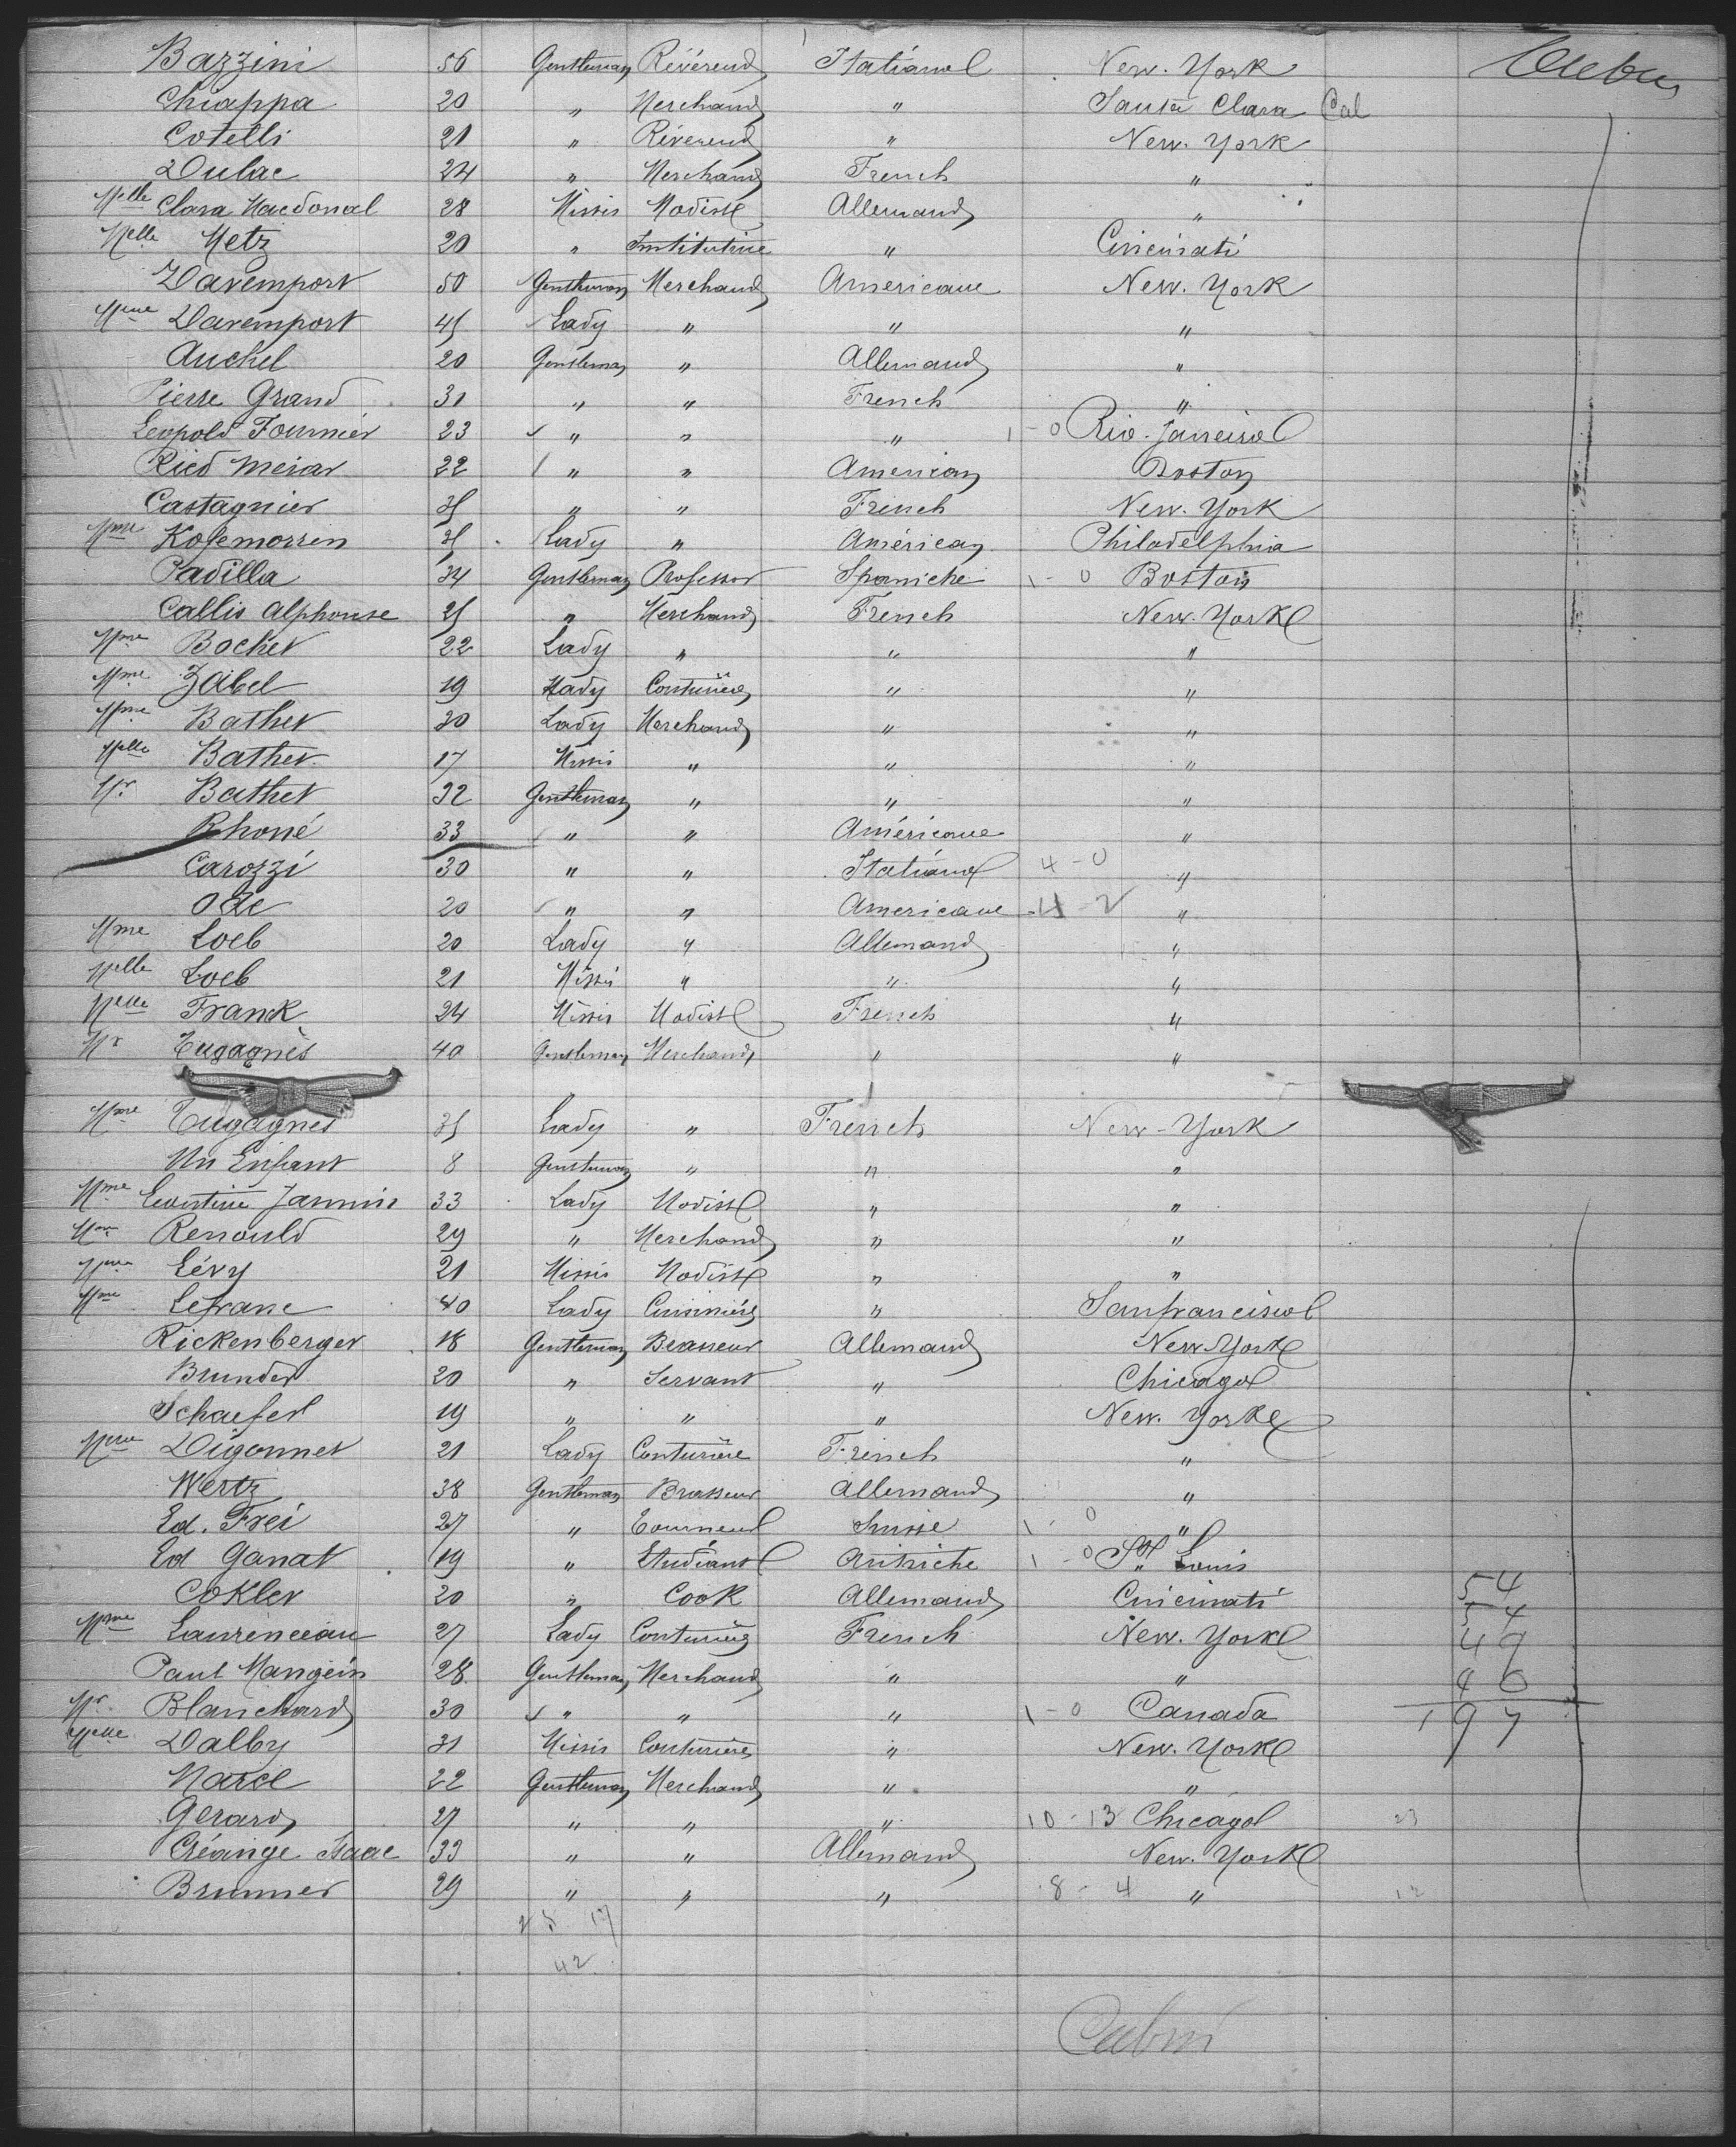 Bazzini 56 Gentleman Révérend Italiano New. York
Chiappa 20 " Merchand " Santa Clara Cal
Cotelli 21 " Révérend " New. York
Dulac 24 " Merchand French "
Melle Clara Macdonal 28 Missis Modiste Allemand "
Melle Metz 20 " Institutrice " Cincinati
Davemport 50 Gentleman Merchand Americane New. York
Mme Davemport 45 Lady " " "
Auchel 20 Gentleman " Allemand "
Pierre Grand 31 " " French "
Leopold Fournier 23 " " " 1-0 Rio-Janneiro
Ried Meiar 22 " " American Boston
Castagnier 35 " " French New. York
Mme Kosemorren 25 Lady " Américan Philadelphia
Padilla 34 Gentleman Professor Spaniche 1-0 Boston
Callis Alphonse 25 " Merchand French New. York
Mme Bochet 22 Lady " " "
Mme Zabel 19 Lady Couturière " "
Mme Bathet 30 Lady Merchand " "
Melle Bathet 17 Missis " " "
Mr Bathet 32 Gentleman " " "
Rhoné 33 " " Américane "
Carozzi 30 " " Italiano 4-0 "
Ode 20 " " Americane 4-2 "
Mme Loeb 20 Lady " Allemand "
Melle Loeb 21 Missis " " "
Melle Franck 24 Missis Modiste French "
Mr Tugagnès 40 Gentleman Merchand " "
Mme Tugagnès 35 Lady " French New-York
Un Enfant 8 Gentleman " " "
Mme Léontine Jannin 33 Lady Modiste " "
Renould 29 " Merchand " "
Lévy 21 Missis Modiste " "
Mme Lefranc 40 Lady Cuisinière " Sanfrancisco
Rickenberger 18 Gentleman Brasseur Allemand New-York
Brunder 20 " Servant " Chicago
Schaefer 19 " " " New. York
Mme Digonnet 21 Lady Couturière French "
Wertz 38 Gentleman Brasseur Allemand "
Ed. Frei 27 " Tourneur Suisse 1-0 "
Ed Ganat 19 " Etudiant Autriche 1-0 St Louis
Cokler 20 " Cook Allemand Cincinati 54
Mme Laurenceau 27 Lady Couturière French New. York 54
Paul Mangein 28 Gentleman Merchand " " 49
Mr Blanchard 30 " " " 1-0 Canada 40
Melle Dalby 31 Missis Couturière " New. York 197
Marcl 22 Gentleman Merchand " "
Gerard 27 " " " 10-13 Chicago 23
Créange Isaac 33 " " Allemand New. York
Brunner 29 " " " 8-4 " 12
25 17
42
Cabin